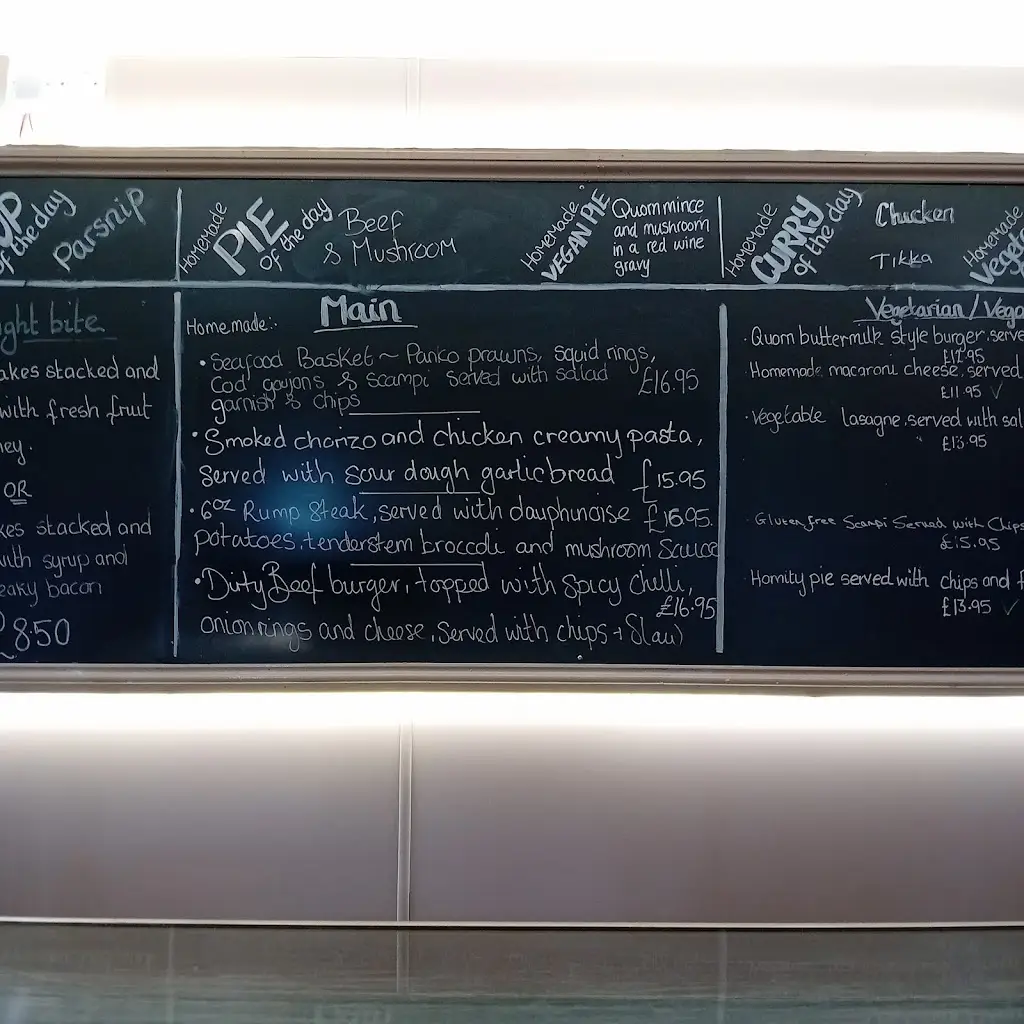 of the day
Parsnip
Homemade
PIE
of the day
Beef
& Mushroom
Homemade
VEGAN PIE
Quorn mince
and mushroom
in a red wine
gravy
Homemade
CURRY
of the day
Chicken
Tikka
Homemade
ght bite
akes stacked and
with fresh fruit
ney.
OR
kes stacked and
with syrup and
eaky bacon
8.50
Main
Homemade:-
• Seafood Basket ~ Panko prawns, squid rings,
Cod goujons, & scampi served with salad
£16.95
garnish & chips
• Smoked chorizo and chicken creamy pasta,
Served with sour dough garlic bread £15.95
• 6oz Rump Steak, served with dauphinoise £16.95.
potatoes, tenderstem broccoli and mushroom Sauce
• Dirty Beef burger, topped with spicy chilli,
£16.95
onion rings and cheese, Served with chips + Slaw
Vegetarian / Vega
• Quorn buttermilk style burger, serve
£12.95
• Homemade macaroni cheese, served
£11.95 ✓
• Vegetable lasagne, served with sal
£13.95
• Gluten free Scampi Served with Chips
£15.95
• Homity pie served with chips and
£13.95 ✓